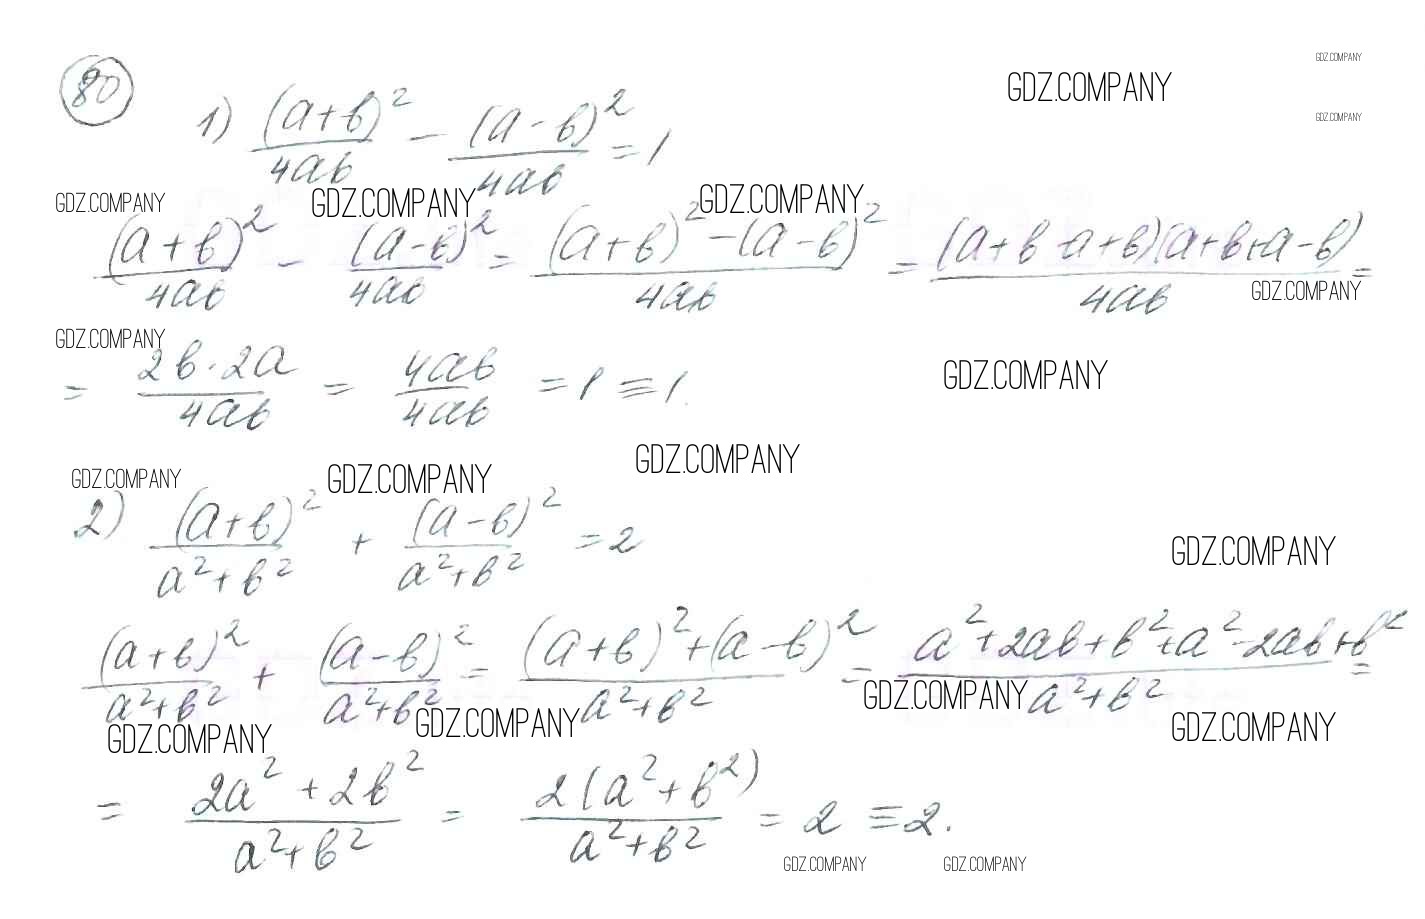 80
GDZ.COMPANY
GDZ.COMPANY
GDZ.COMPANY
1) (a+b)²/4ab - (a-b)²/4ab = 1
GDZ.COMPANY GDZ.COMPANY GDZ.COMPANY
(a+b)²/4ab - (a-b)²/4ab = ((a+b)²-(a-b)²)/4ab = (a+b-a+b)(a+b+a-b)/4ab =
GDZ.COMPANY
GDZ.COMPANY
= 2b·2a/4ab = 4ab/4ab = 1 ≡ 1.
GDZ.COMPANY
GDZ.COMPANY GDZ.COMPANY GDZ.COMPANY
2) (a+b)²/(a²+b²) + (a-b)²/(a²+b²) = 2
GDZ.COMPANY
(a+b)²/(a²+b²) + (a-b)²/(a²+b²) = ((a+b)²+(a-b)²)/(a²+b²) = (a²+2ab+b²+a²-2ab+b²)/(a²+b²) =
GDZ.COMPANY GDZ.COMPANY GDZ.COMPANY GDZ.COMPANY
= (2a²+2b²)/(a²+b²) = 2(a²+b²)/(a²+b²) = 2 ≡ 2.
GDZ.COMPANY GDZ.COMPANY